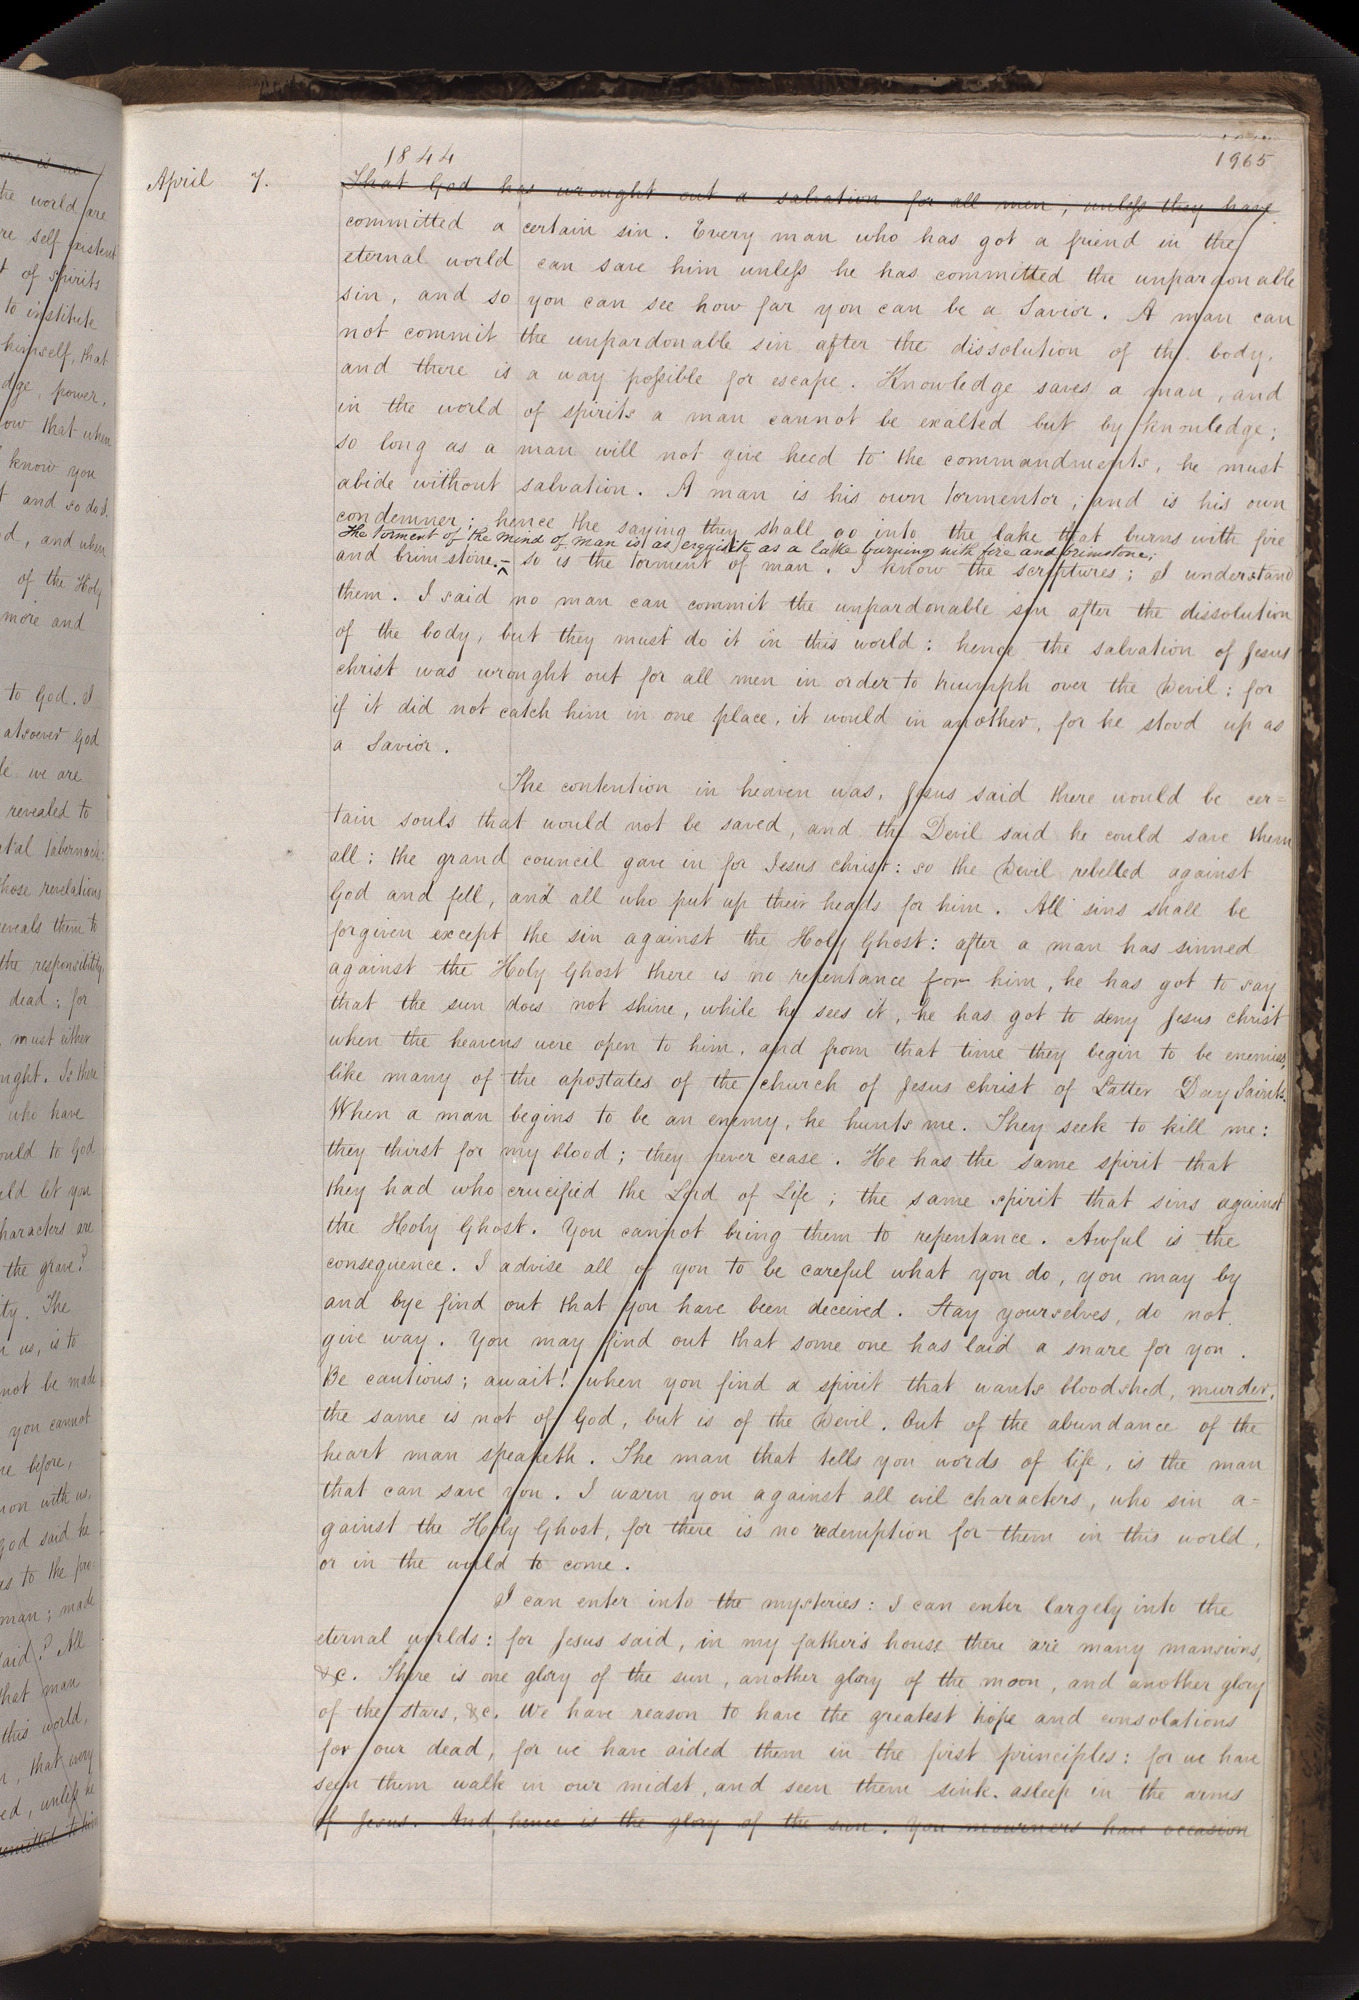 1844
1965
April 7.
That God has wrought out a salvation for all men, unless they have
committed a certain sin. Every man who has got a friend in the
eternal world can save him unless he has committed the unpardonable
sin, and so you can see how far you can be a Savior. A man can
not commit the unpardonable sin after the dissolution of the body,
and there is a way possible for escape. Knowledge saves a man, and
in the world of spirits a man cannot be exalted but by knowledge;
so long as a man will not give heed to the commandments, he must
abide without salvation. A man is his own tormentor, and is his own
condemner; hence the saying they shall go into the lake that burns with fire
The torment of the mind of man is as exquisite as a lake burning with fire and brimstone;
and brimstone.– ^ so is the torment of man. I know the scriptures; I understand
them. I said no man can commit the unpardonable sin after the dissolution
of the body, but they must do it in this world: hence the salvation of Jesus
christ was wrought out for all men in order to triumph over the Devil: for
if it did not catch him in one place, it would in another, for he stood up as
a Savior.
The contention in heaven was, Jesus said there would be cer=
tain souls that would not be saved, and the Devil said he could save them
all: the grand council gave in for Jesus christ: so the Devil rebelled against
God and fell, and all who put up their heads for him. All sins shall be
forgiven except the sin against the Holy Ghost: after a man has sinned
against the Holy Ghost there is no repentance for him, he has got to say
that the sun does not shine, while he sees it, he has got to deny Jesus christ
when the heavens were open to him, and from that time they begin to be enemies,
like many of the apostates of the church of Jesus christ of Latter Day Saints.
When a man begins to be an enemy, he hunts me. They seek to kill me:
they thirst for my blood; they never cease. He has the same spirit that
they had who crucified the Lord of Life; the same spirit that sins against
the Holy Ghost. You cannot bring them to repentance. Awful is the
consequence. I advise all of you to be careful what you do, you may by
and bye find out that you have been deceived. Stay yourselves, do not
give way. You may find out that some one has laid a snare for you.
Be cautious; await! when you find a spirit that wants bloodshed, murder,
the same is not of God, but is of the Devil. Out of the abundance of the
heart man speaketh. The man that tells you words of life, is the man
that can save you. I warn you against all evil characters, who sin a=
gainst the Holy Ghost, for there is no redemption for them in this world,
or in the world to come.
I can enter into the mysteries: I can enter largely into the
eternal worlds: for Jesus said, in my father's house there are many mansions,
&c. There is one glory of the sun, another glory of the moon, and another glory
of the stars, &c. We have reason to have the greatest hope and consolations
for our dead, for we have aided them in the first principles: for we have
seen them walk in our midst, and seen them sink asleep in the arms
of Jesus. And hence is the glory of the sun. You mourners have occasion